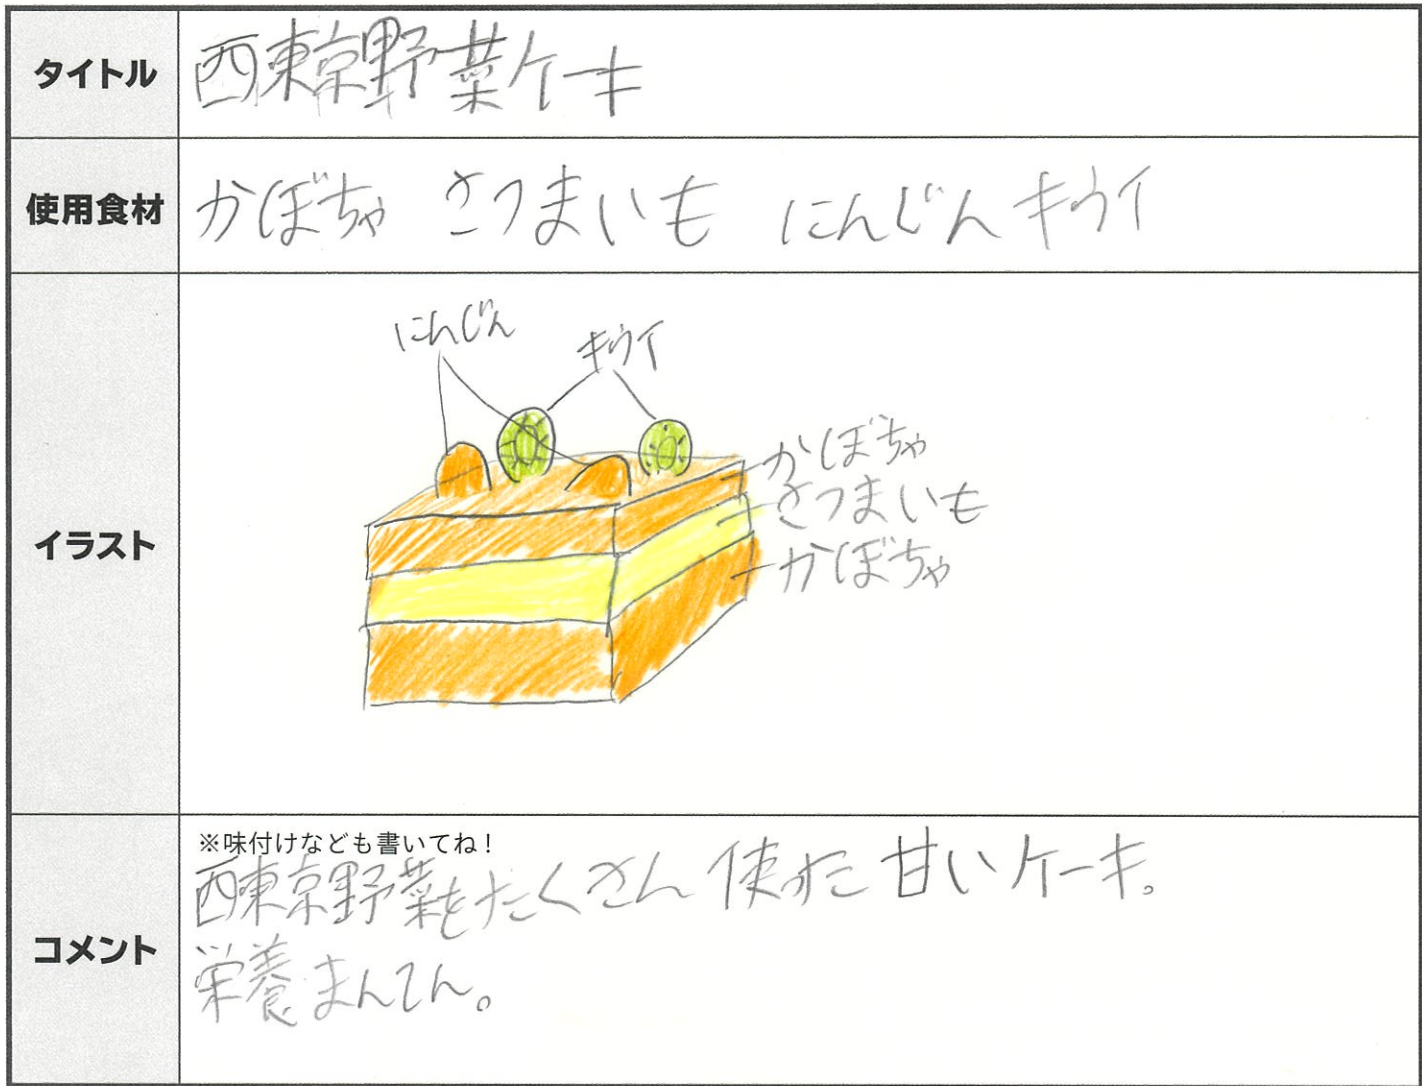 タイトル
西東京野菜ケーキ
使用食材
かぼちゃ さつまいも にんじん キウイ
イラスト
にんじん
キウイ
かぼちゃ
さつまいも
かぼちゃ
コメント
※味付けなども書いてね！
西東京野菜をたくさん使った甘いケーキ。
栄養まんてん。